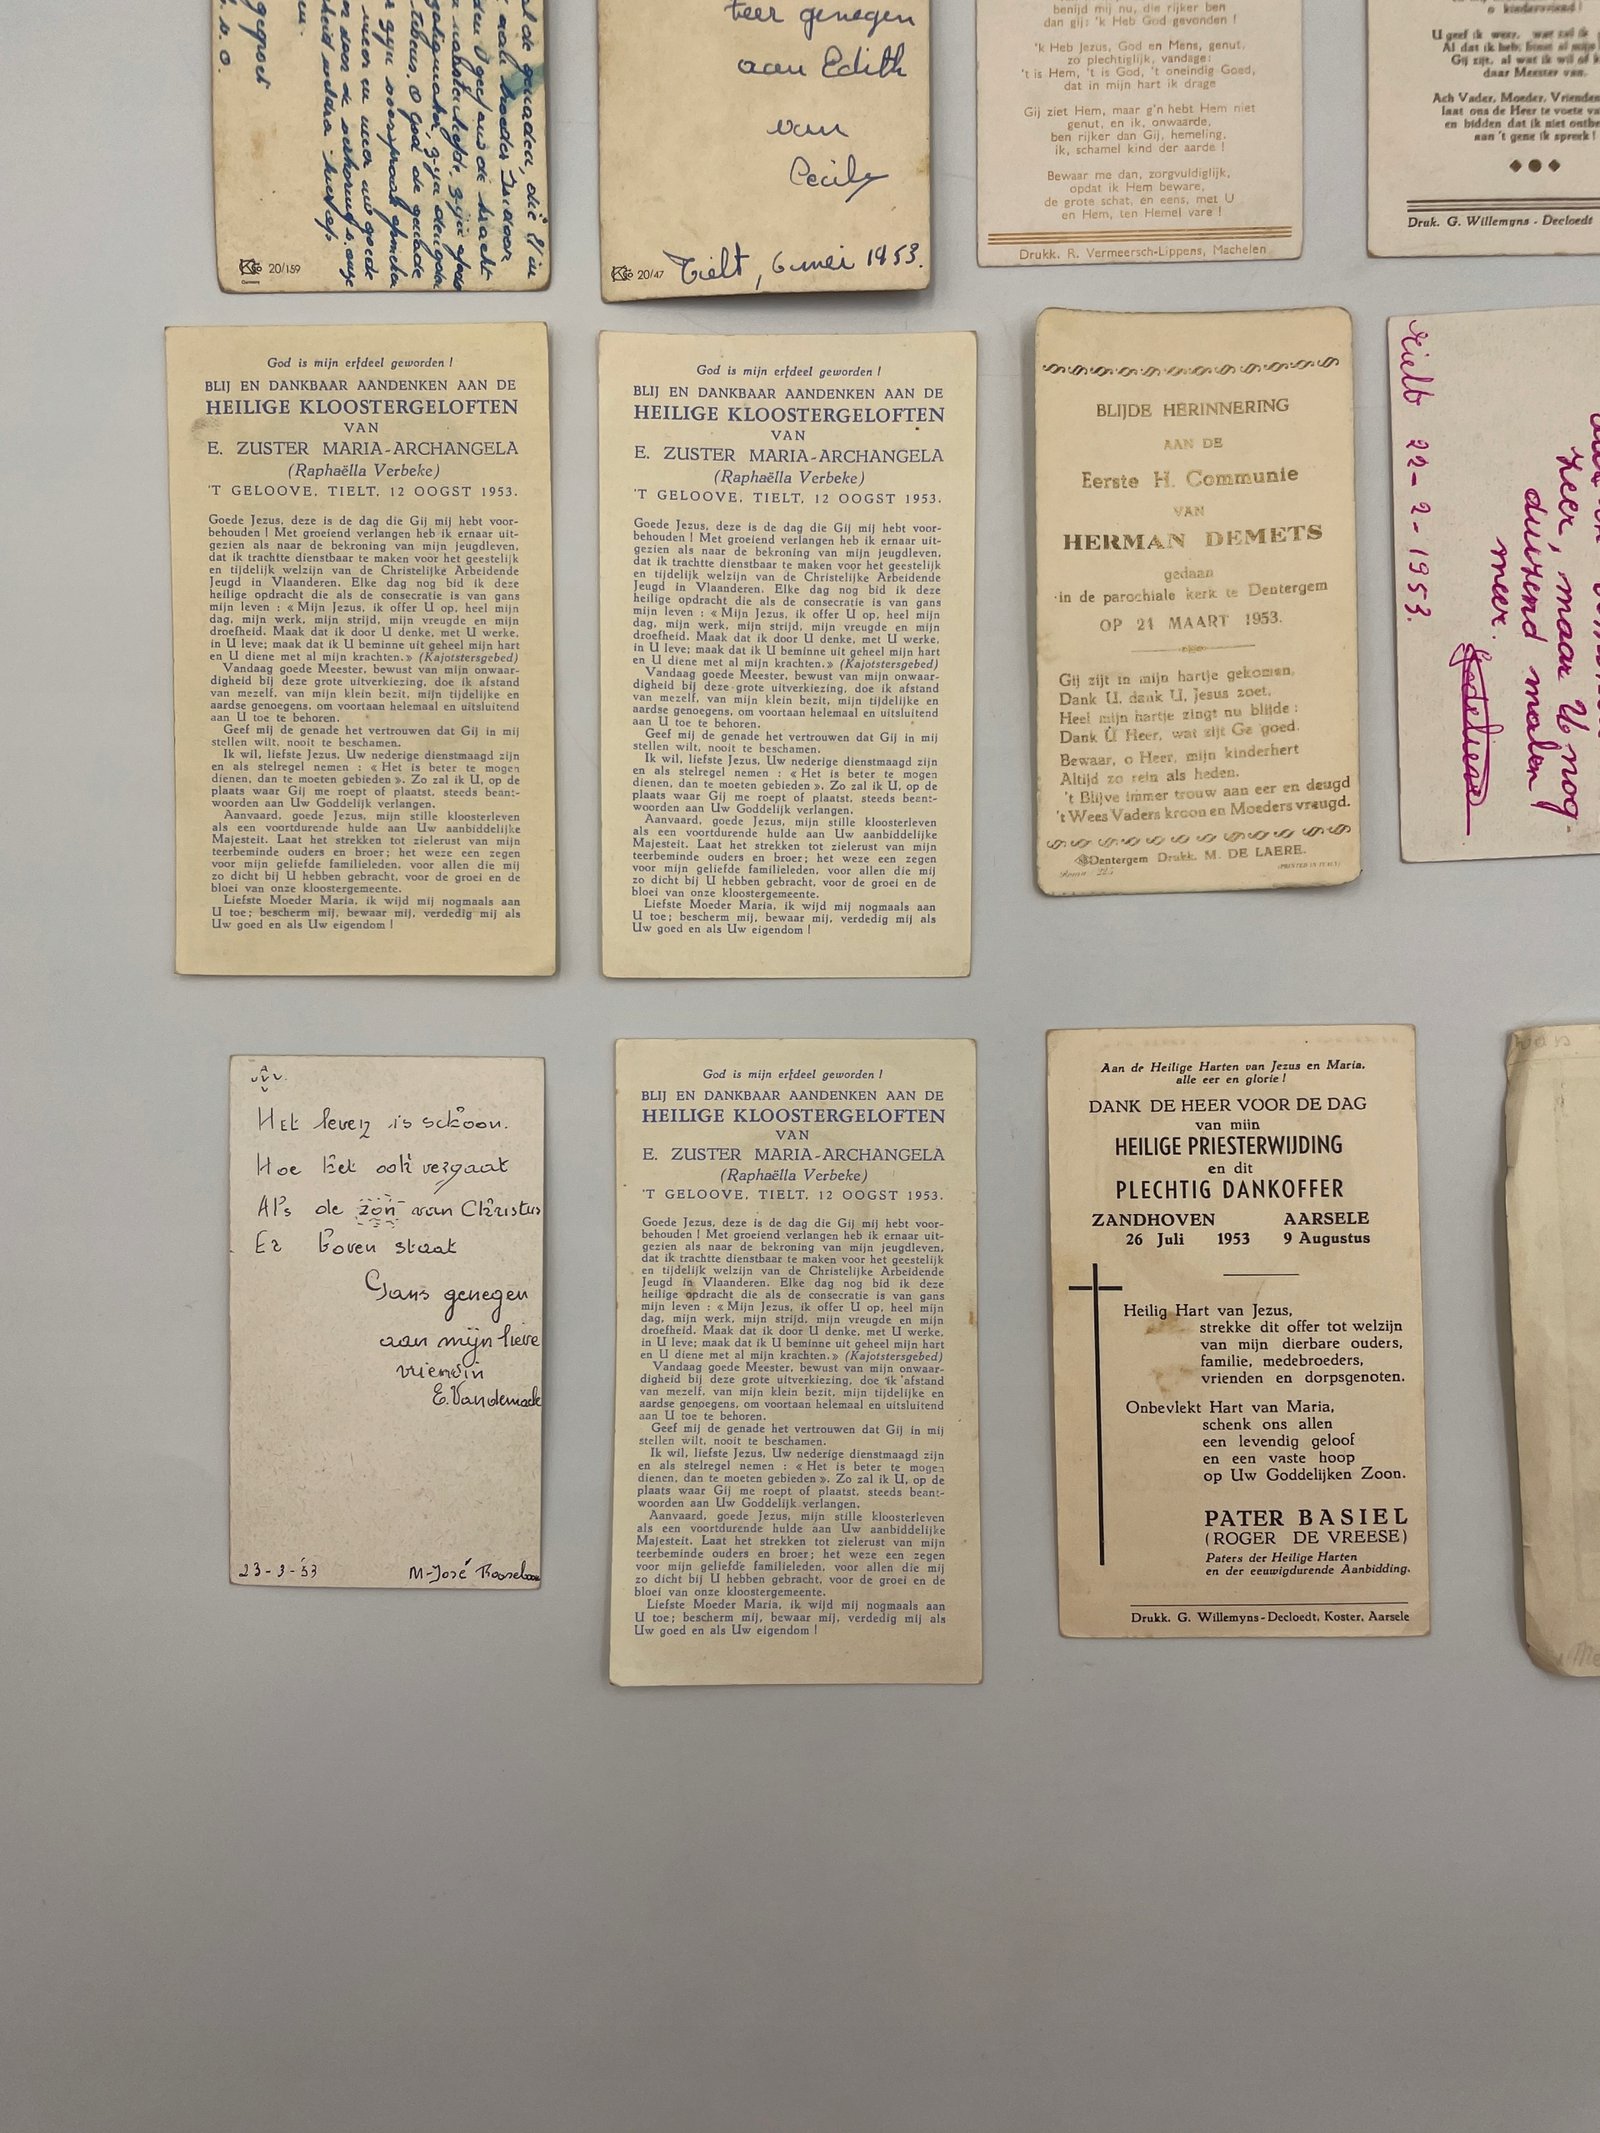 20/159
teer genegen
aan Edith
van
Cecile
20/47 Tielt, 6 mei 1953.
benijd mij nu, die rijker ben
dan gij: 'k Heb God gevonden !
'k Heb Jezus, God en Mens, genut,
zo plechtiglijk, vandage:
't is Hem, 't is God, 't oneindig Goed,
dat in mijn hart ik drage
Gij ziet Hem, maar g'n hebt Hem niet
genut, en ik, onwaarde,
ben rijker dan Gij, hemeling,
ik, schamel kind der aarde !
Bewaar me dan, zorgvuldiglijk,
opdat ik Hem beware,
de grote schat, en eens, met U
en Hem, ten Hemel vare !
Drukk. R. Vermeersch-Lippens, Machelen
o kindervriend !
U geef ik weer, wat zal ik
Al dat ik heb;
Gij zijt, al wat ik wil of
daar Meester van.
Ach Vader, Moeder, Vrienden
laat ons de Heer te voete
en bidden dat ik niet
aan 't gene ik spreek !
Druk. G. Willemyns - Decloedt
God is mijn erfdeel geworden !
BLIJ EN DANKBAAR AANDENKEN AAN DE
HEILIGE KLOOSTERGELOFTEN
VAN
E. ZUSTER MARIA-ARCHANGELA
(Raphaëlla Verbeke)
'T GELOOVE, TIELT, 12 OOGST 1953.
Goede Jezus, deze is de dag die Gij mij hebt voor-
behouden ! Met groeiend verlangen heb ik ernaar uit-
gezien als naar de bekroning van mijn jeugdleven,
dat ik trachtte dienstbaar te maken voor het geestelijk
en tijdelijk welzijn van de Christelijke Arbeidende
Jeugd in Vlaanderen. Elke dag nog bid ik deze
heilige opdracht die als de consecratie is van gans
mijn leven : « Mijn Jezus, ik offer U op, heel mijn
dag, mijn werk, mijn strijd, mijn vreugde en mijn
droefheid. Maak dat ik door U denke, met U werke,
in U leve; maak dat ik U beminne uit geheel mijn hart
en U diene met al mijn krachten.» (Kajotstersgebed)
Vandaag goede Meester, bewust van mijn onwaar-
digheid bij deze grote uitverkiezing, doe ik afstand
van mezelf, van mijn klein bezit, mijn tijdelijke en
aardse genoegens, om voortaan helemaal en uitsluitend
aan U toe te behoren.
Geef mij de genade het vertrouwen dat Gij in mij
stellen wilt, nooit te beschamen.
Ik wil, liefste Jezus, Uw nederige dienstmaagd zijn
en als stelregel nemen : « Het is beter te mogen
dienen, dan te moeten gebieden ». Zo zal ik U, op de
plaats waar Gij me roept of plaatst, steeds beant-
woorden aan Uw Goddelijk verlangen.
Aanvaard, goede Jezus, mijn stille kloosterleven
als een voortdurende hulde aan Uw aanbiddelijke
Majesteit. Laat het strekken tot zielerust van mijn
teerbeminde ouders en broer; het weze een zegen
voor mijn geliefde familieleden, voor allen die mij
zo dicht bij U hebben gebracht, voor de groei en de
bloei van onze kloostergemeente.
Liefste Moeder Maria, ik wijd mij nogmaals aan
U toe; bescherm mij, bewaar mij, verdedig mij als
Uw goed en als Uw eigendom !
God is mijn erfdeel geworden !
BLIJ EN DANKBAAR AANDENKEN AAN DE
HEILIGE KLOOSTERGELOFTEN
VAN
E. ZUSTER MARIA-ARCHANGELA
(Raphaëlla Verbeke)
'T GELOOVE, TIELT, 12 OOGST 1953.
Goede Jezus, deze is de dag die Gij mij hebt voor-
behouden ! Met groeiend verlangen heb ik ernaar uit-
gezien als naar de bekroning van mijn jeugdleven,
dat ik trachtte dienstbaar te maken voor het geestelijk
en tijdelijk welzijn van de Christelijke Arbeidende
Jeugd in Vlaanderen. Elke dag nog bid ik deze
heilige opdracht die als de consecratie is van gans
mijn leven : « Mijn Jezus, ik offer U op, heel mijn
dag, mijn werk, mijn strijd, mijn vreugde en mijn
droefheid. Maak dat ik door U denke, met U werke,
in U leve; maak dat ik U beminne uit geheel mijn hart
en U diene met al mijn krachten.» (Kajotstersgebed)
Vandaag goede Meester, bewust van mijn onwaar-
digheid bij deze grote uitverkiezing, doe ik afstand
van mezelf, van mijn klein bezit, mijn tijdelijke en
aardse genoegens, om voortaan helemaal en uitsluitend
aan U toe te behoren.
Geef mij de genade het vertrouwen dat Gij in mij
stellen wilt, nooit te beschamen.
Ik wil, liefste Jezus, Uw nederige dienstmaagd zijn
en als stelregel nemen : « Het is beter te mogen
dienen, dan te moeten gebieden ». Zo zal ik U, op de
plaats waar Gij me roept of plaatst, steeds beant-
woorden aan Uw Goddelijk verlangen.
Aanvaard, goede Jezus, mijn stille kloosterleven
als een voortdurende hulde aan Uw aanbiddelijke
Majesteit. Laat het strekken tot zielerust van mijn
teerbeminde ouders en broer; het weze een zegen
voor mijn geliefde familieleden, voor allen die mij
zo dicht bij U hebben gebracht, voor de groei en de
bloei van onze kloostergemeente.
Liefste Moeder Maria, ik wijd mij nogmaals aan
U toe; bescherm mij, bewaar mij, verdedig mij als
Uw goed en als Uw eigendom !
BLIJDE HERINNERING
AAN DE
Eerste H. Communie
VAN
HERMAN DEMETS
gedaan
in de parochiale kerk te Dentergem
OP 21 MAART 1953.
Gij zijt in mijn hartje gekomen,
Dank U, dank U, Jesus zoet,
Heel mijn hartje zingt nu blijde :
Dank U Heer, wat zijt Ge goed.
Bewaar, o Heer, mijn kinderhert
Altijd zo rein als heden.
't Blijve immer trouw aan eer en deugd
't Wees Vaders kroon en Moeders vreugd.
Dentergem Drukk. M. DE LAERE.
(PRINTED IN ITALY)
Tielt 22-2-1953.
zeer, maar U nog
duizend malen
meer.
Godelieve
Het leven is schoon.
Hoe het ook vergaat
Als de zon van Christus
Er boven staat
Gans genegen
aan mijn lieve
vriendin
E. Vandemaele
23-3-53 M-José Rooseboom
God is mijn erfdeel geworden !
BLIJ EN DANKBAAR AANDENKEN AAN DE
HEILIGE KLOOSTERGELOFTEN
VAN
E. ZUSTER MARIA-ARCHANGELA
(Raphaëlla Verbeke)
'T GELOOVE, TIELT, 12 OOGST 1953.
Goede Jezus, deze is de dag die Gij mij hebt voor-
behouden ! Met groeiend verlangen heb ik ernaar uit-
gezien als naar de bekroning van mijn jeugdleven,
dat ik trachtte dienstbaar te maken voor het geestelijk
en tijdelijk welzijn van de Christelijke Arbeidende
Jeugd in Vlaanderen. Elke dag nog bid ik deze
heilige opdracht die als de consecratie is van gans
mijn leven : « Mijn Jezus, ik offer U op, heel mijn
dag, mijn werk, mijn strijd, mijn vreugde en mijn
droefheid. Maak dat ik door U denke, met U werke,
in U leve; maak dat ik U beminne uit geheel mijn hart
en U diene met al mijn krachten.» (Kajotstersgebed)
Vandaag goede Meester, bewust van mijn onwaar-
digheid bij deze grote uitverkiezing, doe ik afstand
van mezelf, van mijn klein bezit, mijn tijdelijke en
aardse genoegens, om voortaan helemaal en uitsluitend
aan U toe te behoren.
Geef mij de genade het vertrouwen dat Gij in mij
stellen wilt, nooit te beschamen.
Ik wil, liefste Jezus, Uw nederige dienstmaagd zijn
en als stelregel nemen : « Het is beter te mogen
dienen, dan te moeten gebieden ». Zo zal ik U, op de
plaats waar Gij me roept of plaatst, steeds beant-
woorden aan Uw Goddelijk verlangen.
Aanvaard, goede Jezus, mijn stille kloosterleven
als een voortdurende hulde aan Uw aanbiddelijke
Majesteit. Laat het strekken tot zielerust van mijn
teerbeminde ouders en broer; het weze een zegen
voor mijn geliefde familieleden, voor allen die mij
zo dicht bij U hebben gebracht, voor de groei en de
bloei van onze kloostergemeente.
Liefste Moeder Maria, ik wijd mij nogmaals aan
U toe; bescherm mij, bewaar mij, verdedig mij als
Uw goed en als Uw eigendom !
Aan de Heilige Harten van Jezus en Maria,
alle eer en glorie !
DANK DE HEER VOOR DE DAG
van mijn
HEILIGE PRIESTERWIJDING
en dit
PLECHTIG DANKOFFER
ZANDHOVEN AARSELE
26 Juli 1953 9 Augustus
Heilig Hart van Jezus,
strekke dit offer tot welzijn
van mijn dierbare ouders,
familie, medebroeders,
vrienden en dorpsgenoten.
Onbevlekt Hart van Maria,
schenk ons allen
een levendig geloof
en een vaste hoop
op Uw Goddelijken Zoon.
PATER BASIEL
(ROGER DE VREESE)
Paters der Heilige Harten
en der eeuwigdurende Aanbidding.
Drukk. G. Willemyns-Decloedt, Koster, Aarsele